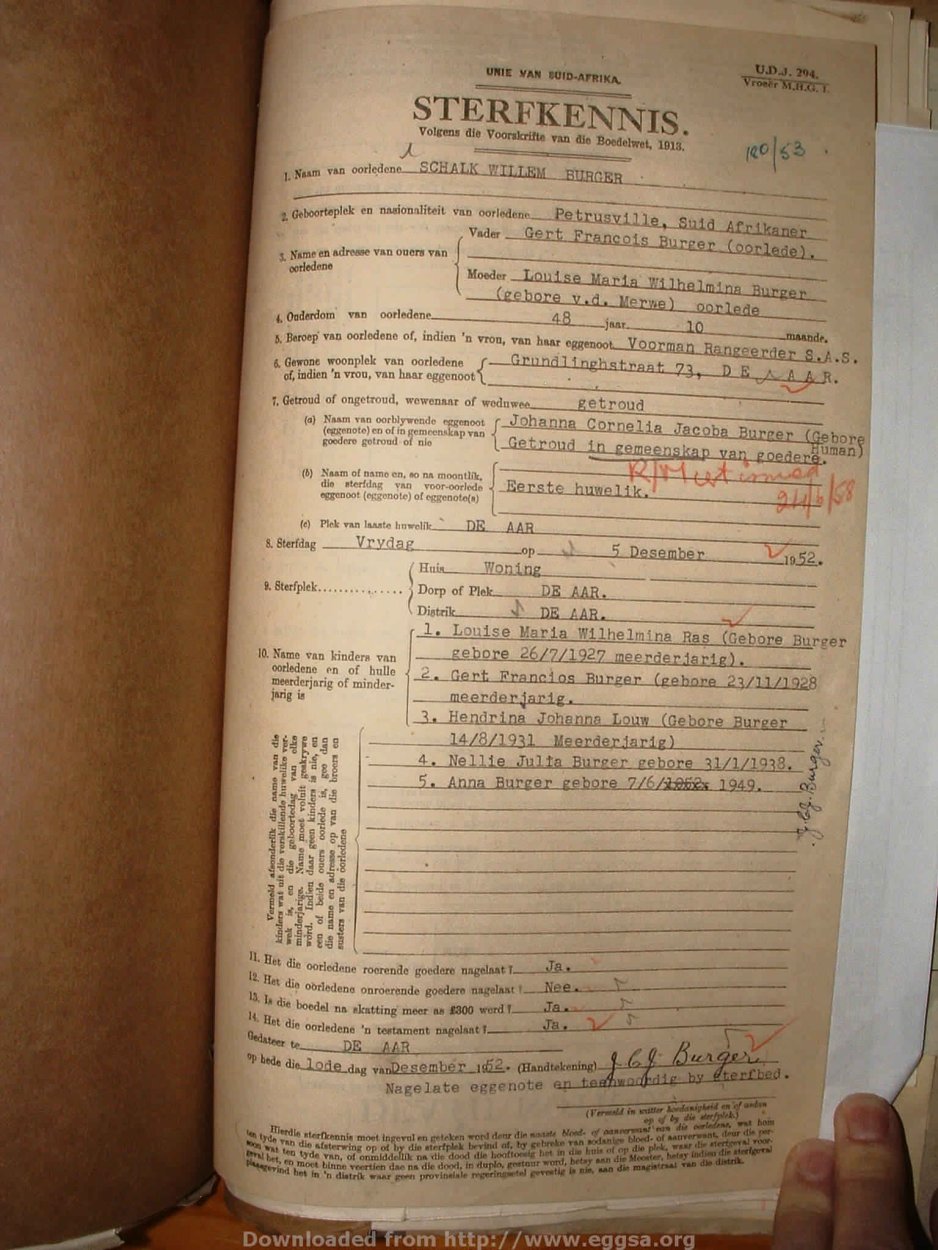 UNIE VAN SUID-AFRIKA.
U.D.J. 294.
Vroeër M.H.G. 1.
STERFKENNIS.
Volgens die Voorskrifte van die Boedelwet, 1913.
120/53
1. Naam van oorledene SCHALK WILLEM BURGER
2. Geboorteplek en nasionaliteit van oorledene Petrusville, Suid Afrikaner
3. Name en adresse van ouers van oorledene
Vader Gert Francois Burger (oorlede).
Moeder Louise Maria Wilhelmina Burger
(gebore v.d. Merwe) oorlede
4. Ouderdom van oorledene 48 jaar 10 maande.
5. Beroep van oorledene of, indien 'n vrou, van haar eggenoot Voorman Rangeerder S.A.S.
6. Gewone woonplek van oorledene
of, indien 'n vrou, van haar eggenoot
Grundlinghstraat 73, DE AAR.
7. Getroud of ongetroud, wewenaar of weduwee getroud
(a) Naam van oorblywende eggenoot
(eggenote) en of in gemeenskap van
goedere getroud of nie
Johanna Cornelia Jacoba Burger (Gebore
Human)
Getroud in gemeenskap van goedere.
(b) Naam of name en, so na moontlik,
die sterfdag van voor-oorlede
eggenoot (eggenote) of eggenote(s)
Eerste huwelik.
24/6/58
(c) Plek van laaste huwelik DE AAR
8. Sterfdag Vrydag op 5 Desember 1952.
9. Sterfplek
Huis Woning
Dorp of Plek DE AAR.
Distrik DE AAR.
10. Name van kinders van
oorledene en of hulle
meerderjarig of minder-
jarig is
1. Louise Maria Wilhelmina Ras (Gebore Burger
gebore 26/7/1927 meerderjarig).
2. Gert Francios Burger (gebore 23/11/1928
meerderjarig.
3. Hendrina Johanna Louw (Gebore Burger
14/8/1931 Meerderjarig)
4. Nellie Julia Burger gebore 31/1/1938.
5. Anna Burger gebore 7/6/ 1949.
J.C.J. Burger.
Vermeld afsonderlik die name van die
kinders wat uit die verskillende huwelike ver-
wek is, en die geboortedag van elke
minderjarige. Name moet voluit geskrywe
word. Indien daar geen kinders is nie, en
een of beide ouers oorlede is, gee dan
die name en adresse op van die broers en
susters van die oorledene
11. Het die oorledene roerende goedere nagelaat? Ja.
12. Het die oorledene onroerende goedere nagelaat? Nee.
13. Is die boedel na skatting meer as £300 werd? Ja.
14. Het die oorledene 'n testament nagelaat? Ja.
Gedateer te DE AAR
op hede die 10de dag van Desember 1952. (Handtekening) J.C.J. Burger
Nagelate eggenote en teenwoordig by sterfbed.
(Vermeld in watter hoedanigheid en of anders
op of by die sterfplek.)
Hierdie sterfkennis moet ingevul en geteken word deur die naaste bloed- of aanverwant van die oorledene, wat hom
ten tyde van die afsterwing op of by die sterfplek bevind of, by gebreke van sodanige bloed- of aanverwant, deur die per-
soon wat ten tyde van, of onmiddellik na die dood die hooftoesig het in die huis of op die plek, waar die sterfgeval voor-
geval het, en moet binne veertien dae na die dood, in duplo, gestuur word, hetsy aan die Meester, hetsy indien die sterfgeval
plaasgevind het in 'n distrik waar geen provinsiale regeringsetel gevestig is nie, aan die magistraat van die distrik.
Downloaded from http://www.eggsa.org